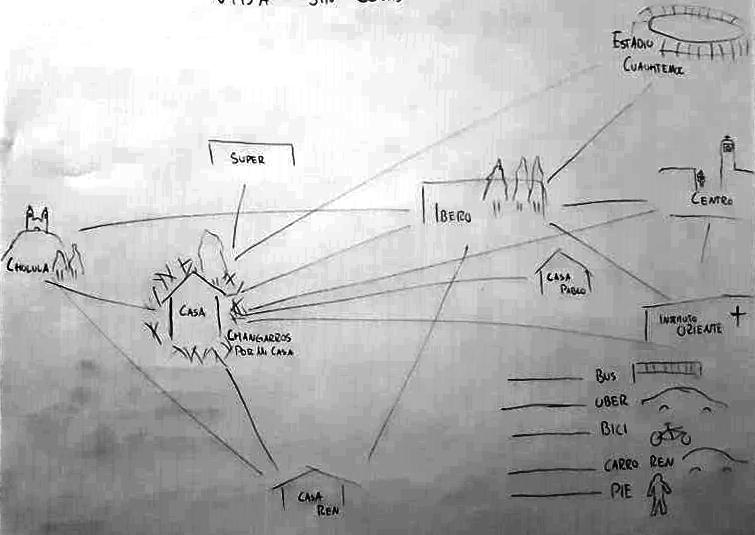 ESTADIO
CUAUHTEMOC
SUPER
CENTRO
IBERO
CHOLULA
CASA
PABLO
CASA
INSTITUTO
ORIENTE
CHANGARROS
POR MI CASA
BUS
UBER
BICI
CARRO REN
PIE
CASA
REN